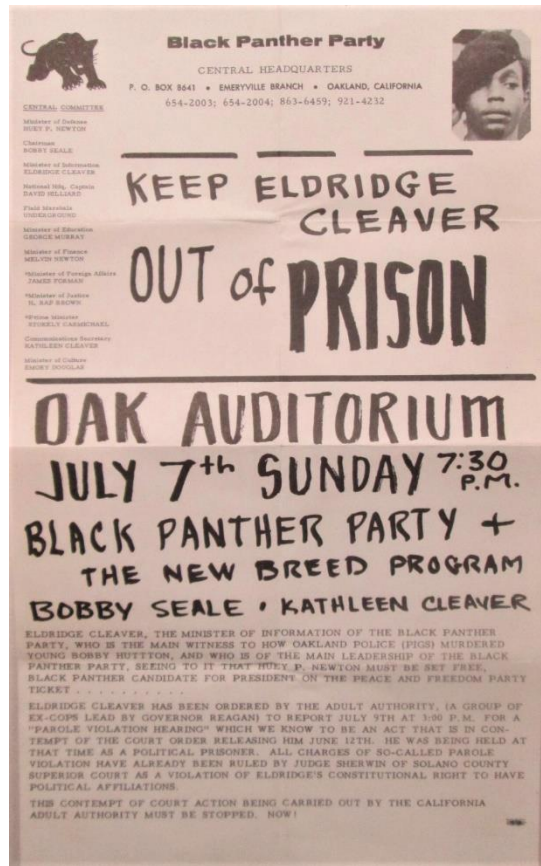 Black Panther Party
CENTRAL HEADQUARTERS
P. O. BOX 8641 • EMERYVILLE BRANCH • OAKLAND, CALIFORNIA
654-2003; 654-2004; 863-6459; 921-4232
CENTRAL COMMITTEE
Minister of Defense
HUEY P. NEWTON
Chairman
BOBBY SEALE
Minister of Information
ELDRIDGE CLEAVER
National Hdq. Captain
DAVID HILLIARD
Field Marshals
UNDERGROUND
Minister of Education
GEORGE MURRAY
Minister of Finance
MELVIN NEWTON
*Minister of Foreign Affairs
JAMES FORMAN
*Minister of Justice
H. RAP BROWN
*Prime Minister
STOKELY CARMICHAEL
Communications Secretary
KATHLEEN CLEAVER
Minister of Culture
EMORY DOUGLAS
KEEP ELDRIDGE
CLEAVER
OUT of PRISON
OAK AUDITORIUM
JULY 7th SUNDAY 7:30 P.M.
BLACK PANTHER PARTY +
THE NEW BREED PROGRAM
BOBBY SEALE • KATHLEEN CLEAVER
ELDRIDGE CLEAVER, THE MINISTER OF INFORMATION OF THE BLACK PANTHER
PARTY, WHO IS THE MAIN WITNESS TO HOW OAKLAND POLICE (PIGS) MURDERED
YOUNG BOBBY HUTTTON, AND WHO IS OF THE MAIN LEADERSHIP OF THE BLACK
PANTHER PARTY, SEEING TO IT THAT HUEY P. NEWTON MUST BE SET FREE,
BLACK PANTHER CANDIDATE FOR PRESIDENT ON THE PEACE AND FREEDOM PARTY
TICKET . . . . . . . . . .
ELDRIDGE CLEAVER HAS BEEN ORDERED BY THE ADULT AUTHORITY, (A GROUP OF
EX-COPS LEAD BY GOVERNOR REAGAN) TO REPORT JULY 9TH AT 3:00 P.M. FOR A
"PAROLE VIOLATION HEARING" WHICH WE KNOW TO BE AN ACT THAT IS IN CON-
TEMPT OF THE COURT ORDER RELEASING HIM JUNE 12TH. HE WAS BEING HELD AT
THAT TIME AS A POLITICAL PRISONER. ALL CHARGES OF SO-CALLED PAROLE
VIOLATION HAVE ALREADY BEEN RULED BY JUDGE SHERWIN OF SOLANO COUNTY
SUPERIOR COURT AS A VIOLATION OF ELDRIDGE'S CONSTITUTIONAL RIGHT TO HAVE
POLITICAL AFFILIATIONS.
THIS CONTEMPT OF COURT ACTION BEING CARRIED OUT BY THE CALIFORNIA
ADULT AUTHORITY MUST BE STOPPED. NOW!